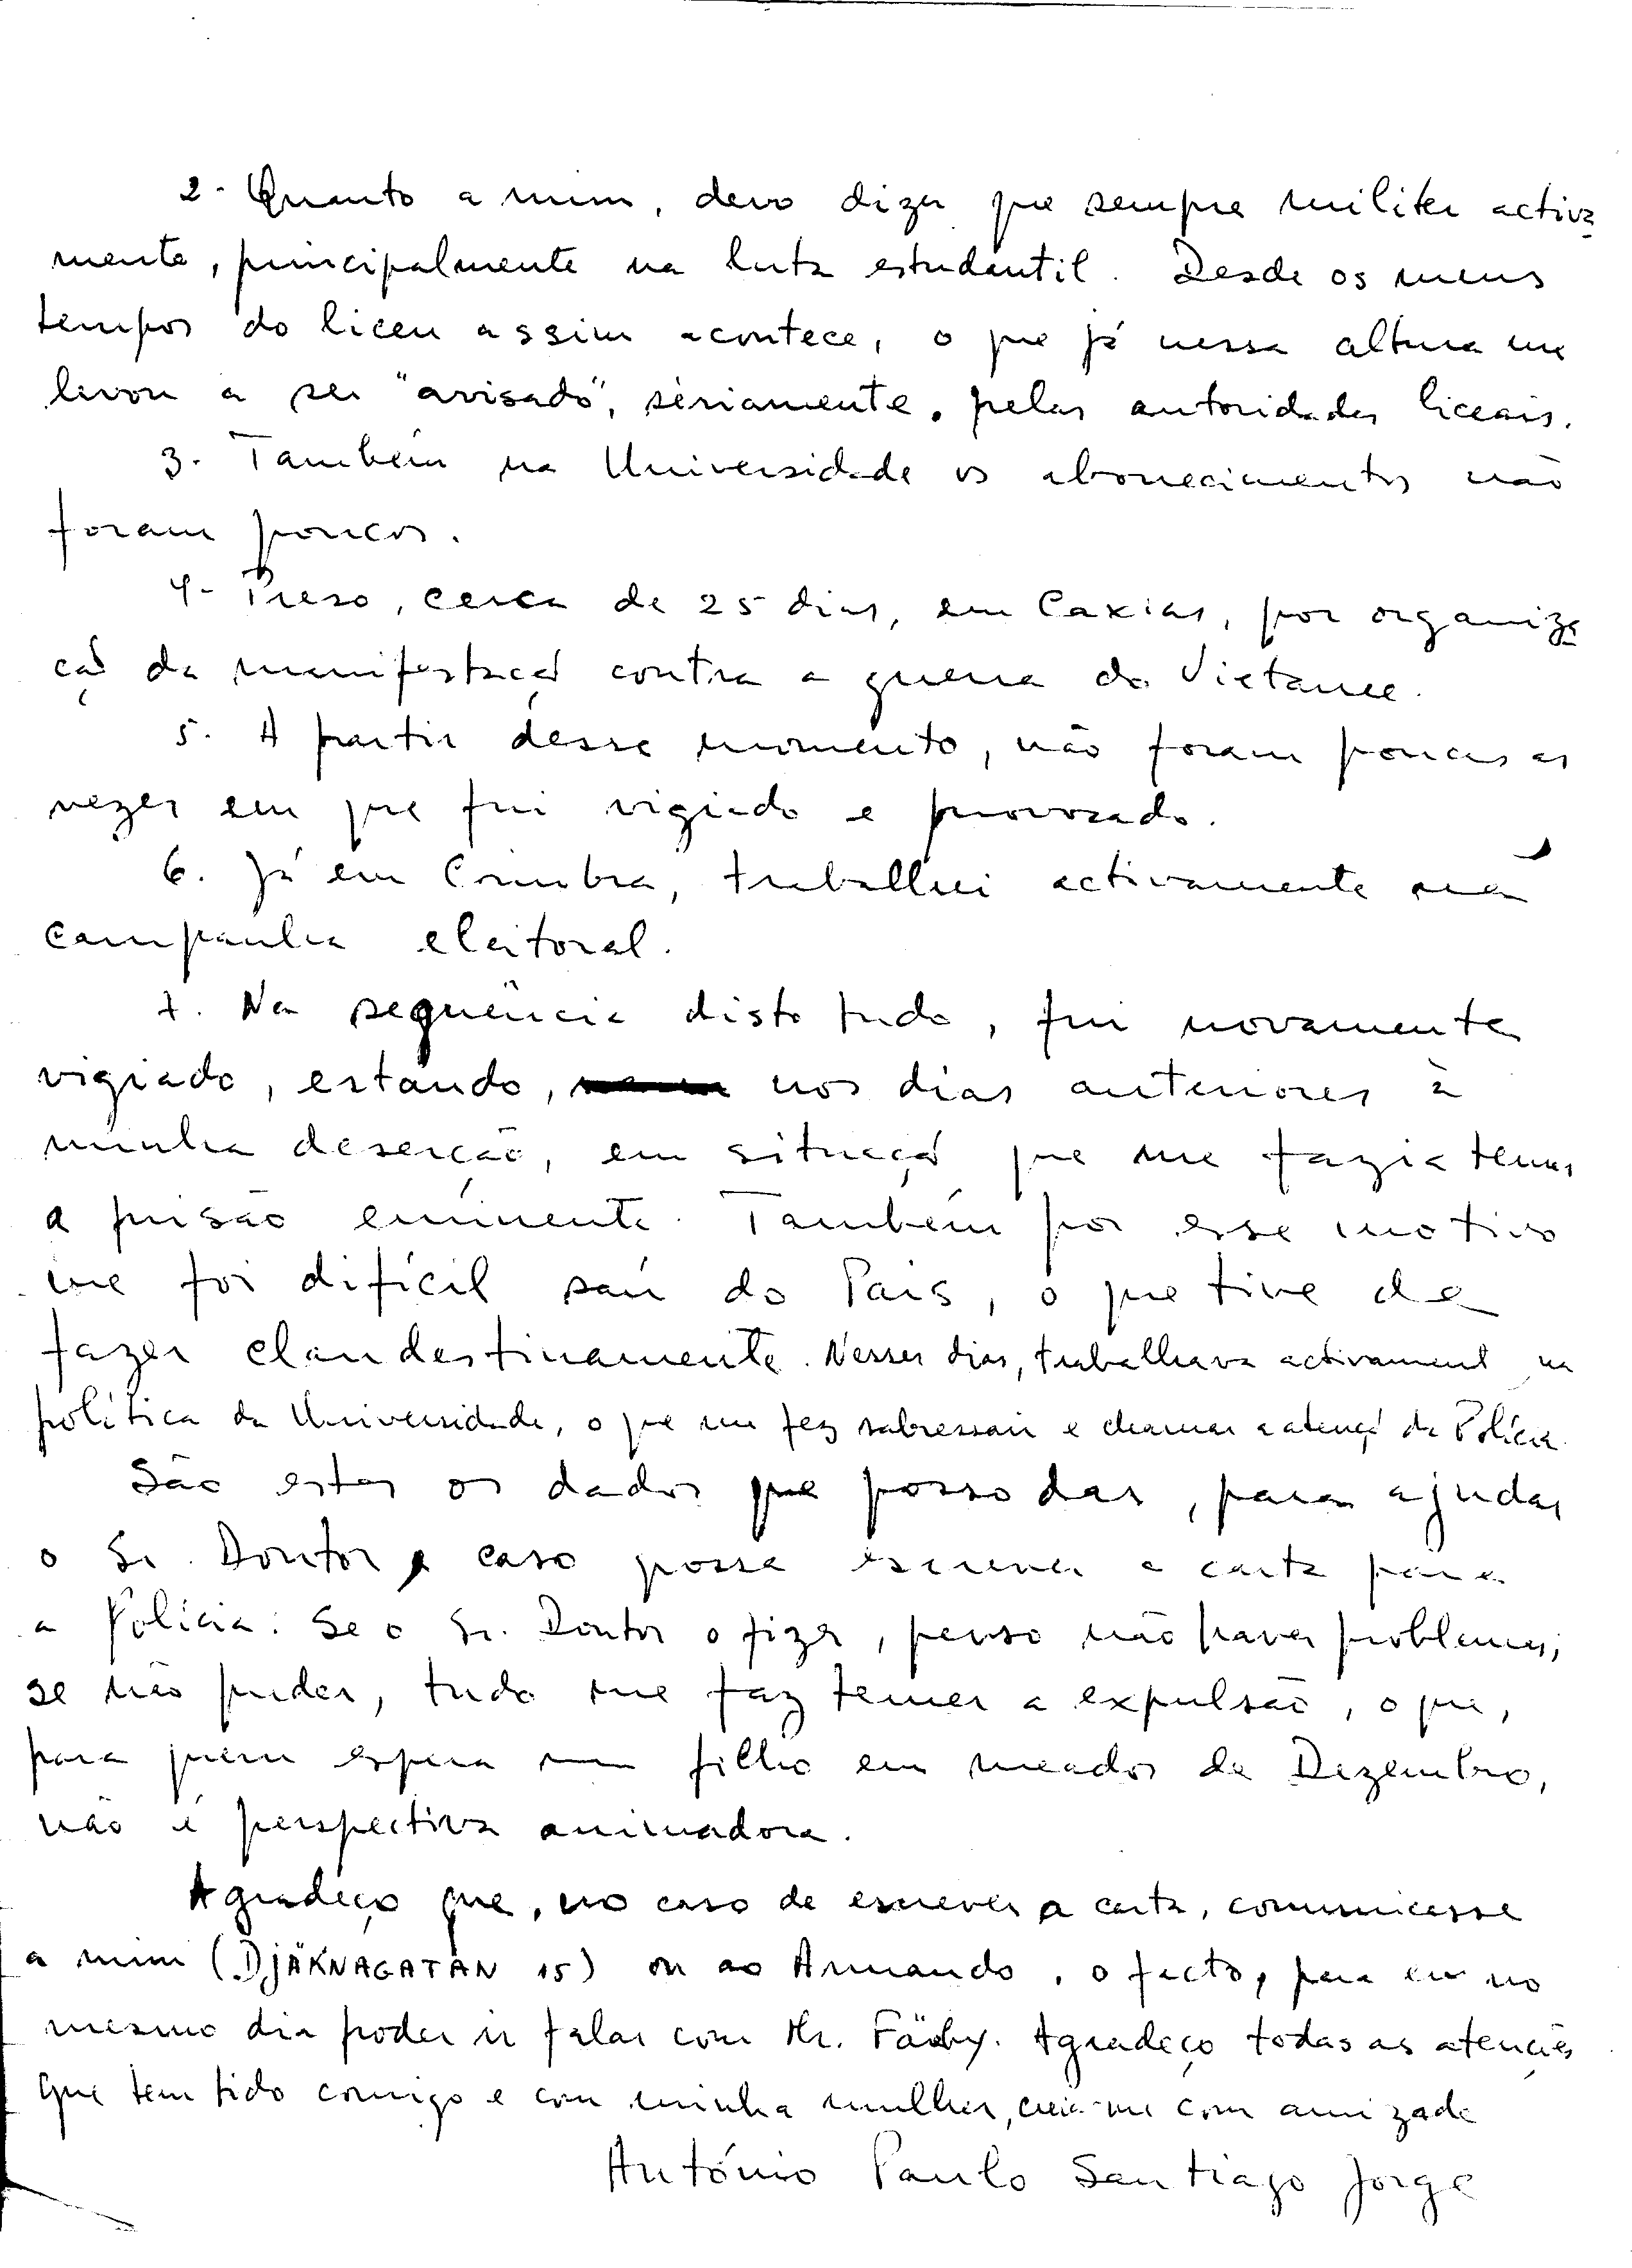 2- Quanto a mim, devo dizer que sempre militei activa
mente, principalmente na luta estudantil. Desde os meus
tempos do liceu assim acontece, o que já nessa altura me
levou a ser "avisado", sèriamente, pelas autoridades liceais.
3. Também na Universidade os aborrecimentos não
foram poucos.
4- Preso, cerca de 25 dias, em Caxias, por organiza
ção da manifestação contra a guerra do Vietname.
5. A partir desse momento, não foram poucas as
vezes em que fui vigiado e provocado.
6. Já em Coimbra, trabalhei activamente na
campanha eleitoral.
7. Na sequência disto tudo, fui novamente
vigiado, estando, nos dias anteriores à
minha deserção, em situação que me fazia temer
a prisão eminente. Também por esse motivo
me foi difícil sair do País, o que tive de
fazer clandestinamente. Nesses dias, trabalhava activament na
política da Universidade, o que me fez sobressair e chamar a atenção da Polícia.
São estes os dados que posso dar, para ajudar
o Sr. Doutor, caso possa escrever a carta para
a Polícia. Se o Sr. Doutor o fizer, penso não haver problemas;
se não puder, tudo me faz temer a expulsão, o que,
para quem espera um filho em meados de Dezembro,
não é perspectiva animadora.
Agradeço que, no caso de escrever a carta, comunicasse
a mim (DJÄKNAGATAN 15) ou ao Armando, o facto, para eu no
mesmo dia poder ir falar com Mr. Agradeço todas as atenções
que tem tido comigo e com minha mulher, creia-me com amizade
António Paulo Santiago Jorge